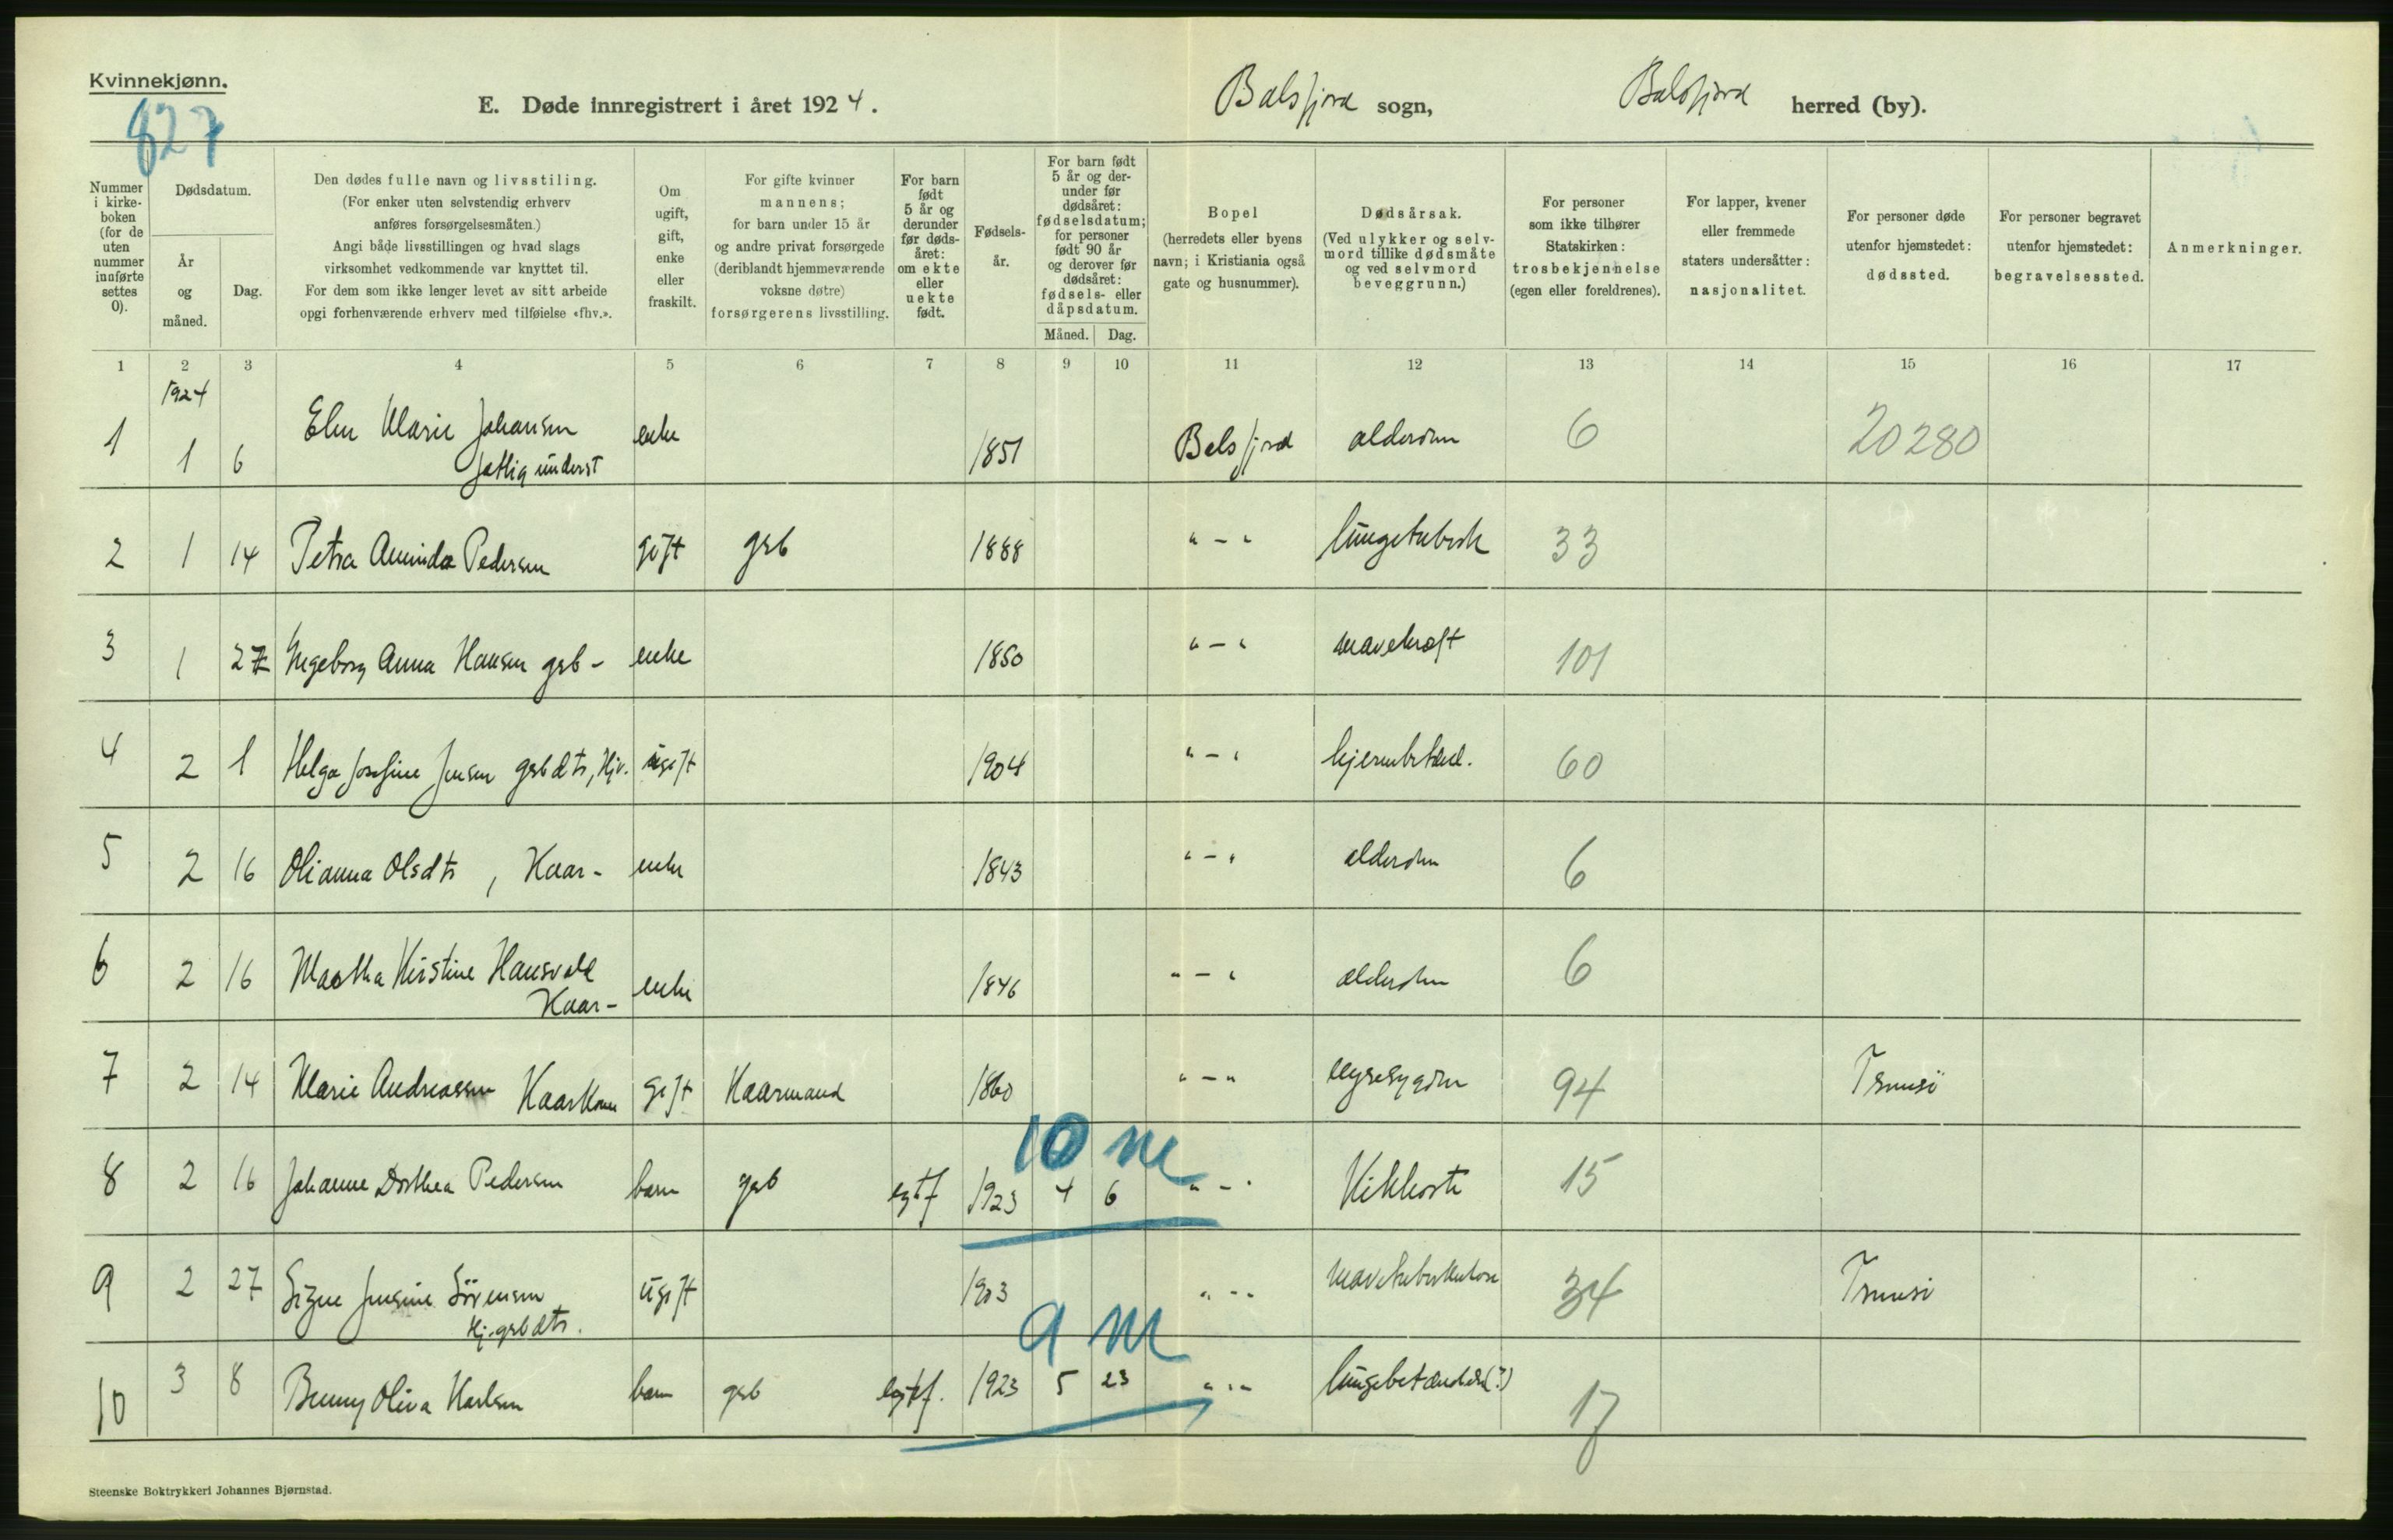 Kvinnekjønn.
827
E. Døde innregistrert i året 1924. Balsfjord sogn, Balsfjord herred (by).
Nummer i kirke-boken (for de uten nummer innførte settes 0).
Dødsdatum.
År og måned.
Dag.
Den dødes fulle navn og livsstiling.
(For enker uten selvstendig erhverv
anføres forsørgelsesmåten.)
Angi både livsstillingen og hvad slags
virksomhet vedkommende var knyttet til.
For dem som ikke lenger levet av sitt arbeide
opgi forhenværende erhverv med tilføielse «fhv.».
Om ugift, gift, enke eller fraskilt.
For gifte kvinner
mannens;
for barn under 15 år
og andre privat forsørgede
(deriblandt hjemmeværende
voksne døtre)
forsørgerens livsstilling.
For barn født 5 år og derunder før døds-året: om ekte eller uekte født.
Fødsels-år.
For barn født 5 år og der-under før dødsåret: fødselsdatum; for personer født 90 år og derover før dødsåret: fødsels- eller dåpsdatum.
Måned. Dag.
Bopel
(herredets eller byens
navn; i Kristiania også
gate og husnummer).
Dødsårsak.
(Ved ulykker og selv-
mord tillike dødsmåte
og ved selvmord
beveggrunn.)
For personer
som ikke tilhører
Statskirken:
trosbekjennelse
(egen eller foreldrenes).
For lapper, kvener
eller fremmede
staters undersåtter:
nasjonalitet.
For personer døde
utenfor hjemstedet:
dødssted.
For personer begravet
utenfor hjemstedet:
begravelsessted.
Anmerkninger.
1 2 3 4 5 6 7 8 9 10 11 12 13 14 15 16 17
1924
1 1 6 Elen Marie Johansen enke 1851 Balsfjord alderdom 6 20280
fattig underst
2 1 14 Petra Aminda Pedersen gift grb 1888 " - " lungetuberk 33
3 1 27 Ingeborg Anna Hansen grb - enke 1850 " - " mavekræft 101
4 2 1 Helga Josefine Jensen grbdtr, Hjv. ugift 1904 " - " hjernebetænd. 60
5 2 16 Olianna Olsdtr, Kaar- enke 1843 " - " alderdom 6
6 2 16 Martha Kirstine Hansvold enke 1846 " - " alderdom 6
Kaar-
7 2 14 Marie Andreassen Kaarkone gift Kaarmand 1860 " - " nyresygdom 94 Tromsö
10 m
8 2 16 Johanne Dorthea Pedersen barn grb egtf 1923 4 6 " - " Kikhoste 15
9 2 27 Signe Jensine Sörensen ugift 1903 " - " mavetuberkulose 34 Tromsö
Hj. grbdtr.
9 m
10 3 8 Benny Oliva Karlsen barn grb egtf. 1923 5 23 " - " lungebetændelse(?) 17
Steenske Boktrykkeri Johannes Bjørnstad.